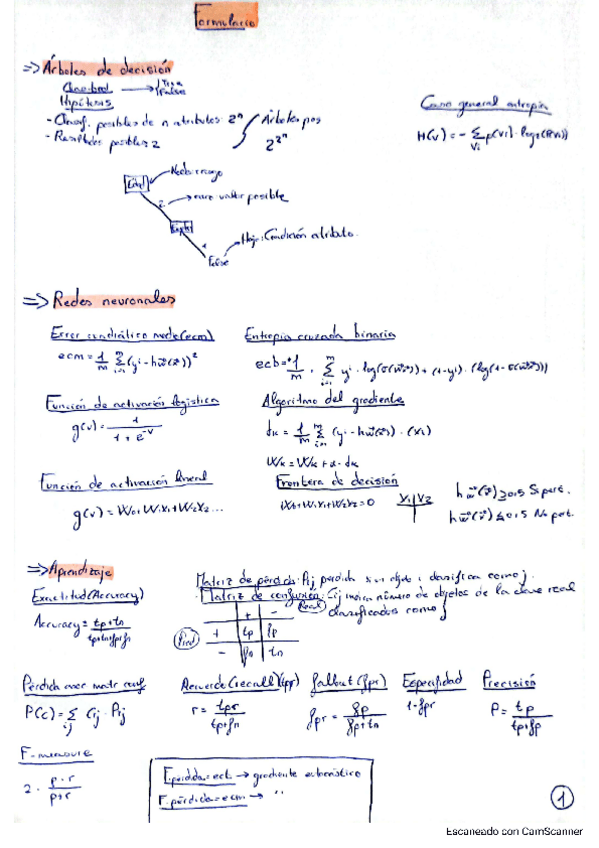 Formulario
=> Árboles de decisión
Clase bool → True
False
Hipótesis
- Classif. posibles de n atributos: 2^n
- Resultados posibles 2
Árboles pos
2^2^n
Caso general entropía
H(v) = - Σ_{vi} p(vi) · log2(p(vi))
Nodo: rasgo
rama: valor posible
Hoja: Condición atributo.
False
=> Redes neuronales
Error cuadrático medio (ecm)
ecm = 1/m Σ_{i=1}^m (y^i - h_w(x))^2
Entropía cruzada binaria
ecb = 1/m · Σ_{i=1}^m y^i · log(σ(wx)) + (1-yi) · (log(1-σ(wx)))
Función de activación logística
g(v) = 1 / 1 + e^-v
Algoritmo del gradiente
dk = 1/m Σ_{i=1}^m (yi - h_w(x)) · (xi)
Wk = Wk + α · dk
Función de activación lineal
g(v) = W0 + W1X1 + W2X2 ...
Frontera de decisión
W1X1 + W2X2 = 0
V1 | V2
h_w(x) ≥ 0,5 Si pert.
h_w(x) ≤ 0,5 No pert.
=> Aprendizaje
Exactitud (Accuracy)
Accuracy = tp + tn / tp + tn + fp + fn
Matriz de pérdida: Pij pérdida si un objeto i clasifica como j.
Matriz de confusión: Cij indica número de objetos de la clase real
clasificados como j
Real
+ -
Pred
+ tp fp
- fn tn
Pérdida
P(c) = Σ_{i,j} Cij · Pij
(recall) (tpr)
r = / tp + fn
fallout (fpr)
fpr = fp / fp + tn
Especifidad
1 - fpr
Precisión
P = tp / tp + fp
F-measure
2 · p · r / p + r
F. pérdida = ecb → gradiente
F. pérdida = ecm → "
1
Escaneado con CamScanner